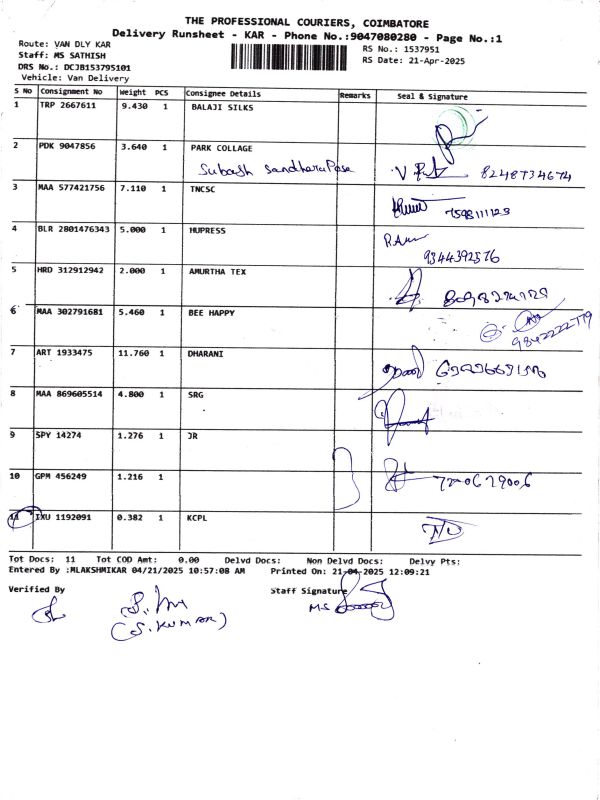 THE PROFESSIONAL COURIERS, COIMBATORE
Delivery Runsheet - KAR - Phone No.:9047080280 - Page No.:1
Route: VAN DLY KAR
Staff: MS SATHISH
DRS No.: DCJB153795101
Vehicle: Van Delivery
RS No.: 1537951
RS Date: 21-Apr-2025
S No Consignment No Weight PCS Consignee Details Remarks Seal & Signature
1 TRP 2667611 9.430 1 BALAJI SILKS
2 PDK 9047856 3.640 1 PARK COLLAGE
Subash 8248734674
3 MAA 577421756 7.110 1 TNCSC
7598111123
4 BLR 2801476343 5.000 1 HUPRESS
9344392576
5 HRD 312912942 2.000 1 AMURTHA TEX
6 MAA 302791681 5.460 1 BEE HAPPY
9842222779
7 ART 1933475 11.760 1 DHARANI
8 MAA 869605514 4.800 1 SRG
9 SPY 14274 1.276 1 JR
10 GPM 456249 1.216 1
11 IXU 1192091 0.382 1 KCPL
Tot Docs: 11 Tot COD Amt: 0.00 Delvd Docs: Non Delvd Docs: Delvy Pts:
Entered By :MLAKSHMIKAR 04/21/2025 10:57:08 AM Printed On: 21-04-2025 12:09:21
Verified By
Staff Signature
MS
(S.KUMAR)